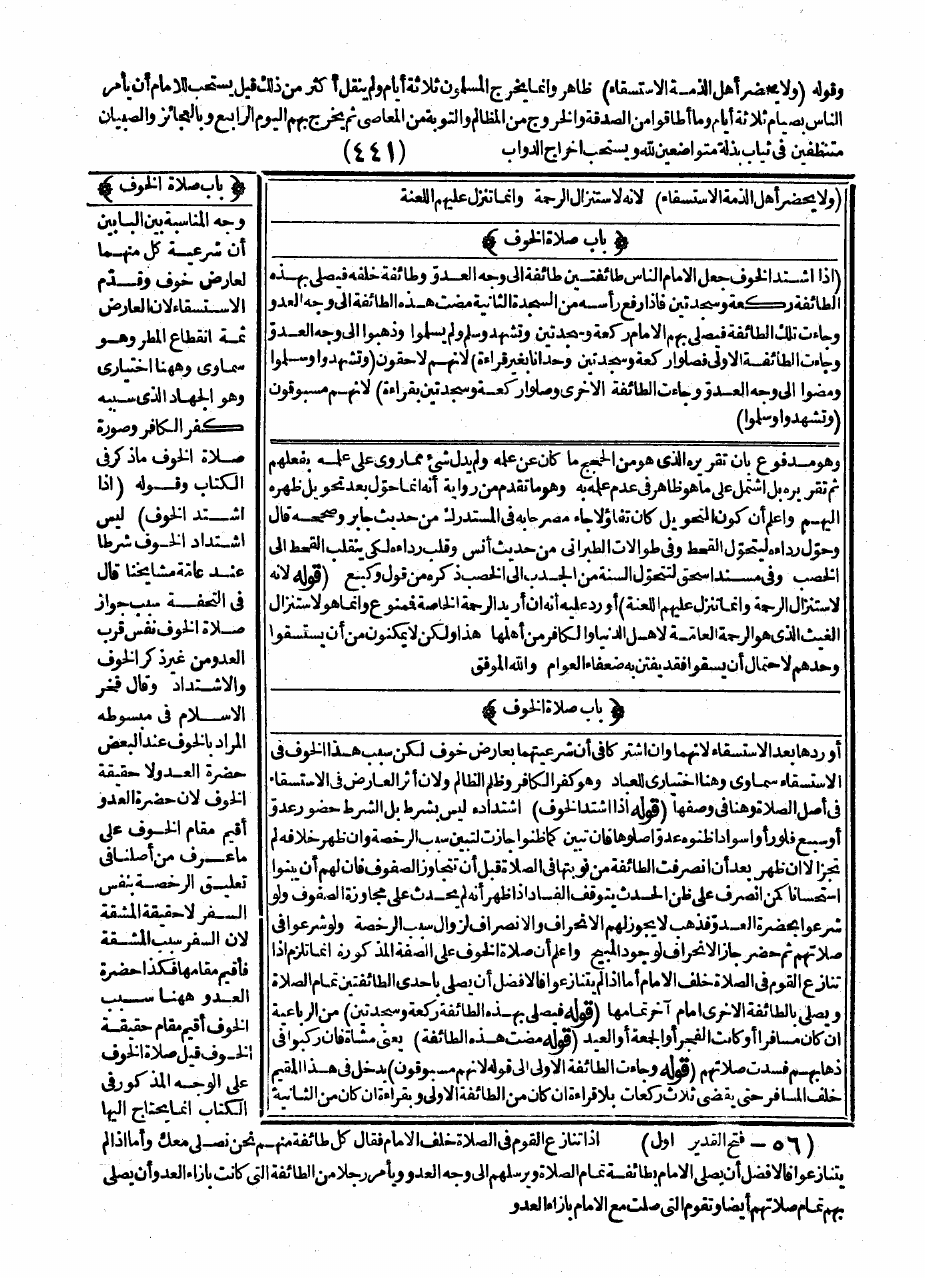 وقوله (ولا يحضر أهل الذمة الاستسقاء) ظاهر وانما يخرج المسلمون ثلاثة أيام ولم ينقل أكثر من ذلك قيل يستحب للامام أن يأمر
الناس بصيام ثلاثة أيام وما أطاقوا من الصدقة والخروج من المظالم والتوبة من المعاصى ثم يخرج بهم اليوم الرابع وبالعجائز والصبيان
متنظفين فى ثياب بذلة متواضعين لله ويستحب اخراج الدواب
(٤٤١)
(ولا يحضر أهل الذمة الاستسقاء) لانه لاستنزال الرحمة وانما تنزل عليهم اللعنة
﴿ باب صلاة الخوف ﴾
(اذا اشتد الخوف جعل الامام الناس طائفتين طائفة الى وجه العدو وطائفة خلفه فيصلى بهذه
الطائفة ركعة وسجدتين فاذا رفع رأسه من السجدة الثانية مضت هذه الطائفة الى وجه العدو
وجاءت تلك الطائفة فيصلى بهم الامام ركعة وسجدتين وتشهد وسلم ولم يسلموا وذهبوا الى وجه العدو
وجاءت الطائفة الاولى فصلوا ركعة وسجدتين وحدانا بغير قراءة) لانهم لاحقون (وتشهدوا وسلموا
ومضوا الى وجه العدو وجاءت الطائفة الاخرى وصلوا ركعة وسجدتين بقراءة) لانهم مسبوقون
(وتشهدوا وسلموا)
وهو مدفوع بان تقريره الذى هو من الحجج ما كان عن علمه ولم يدل شئ مما روى على علمه بفعلهم
ثم تقريره بل اشتمل على ما هو ظاهر فى عدم علمه به وهو ما تقدم من رواية أنه انما حول بعد تحويل ظهره
اليهم واعلم أن كون التحويل كان تفاؤلا جاء مصرحا به فى المستدرك من حديث جابر وصححه قال
وحول رداءه ليتحول القحط وفى طوالات الطبرانى من حديث أنس وقلب رداءه لكى ينقلب القحط الى
الخصب وفى مسند اسحق لتتحول السنة من الجدب الى الخصب ذكره من قول وكيع (قوله لانه
لاستنزال الرحمة وانما تنزل عليهم اللعنة) أورد عليه أنه ان أريد الرحمة الخاصة فممنوع وانما هو لاستنزال
الغيث الذى هو الرحمة العامة لاهل الدنيا والكافر من أهلها هذا ولكن لا يمكنون من أن يستسقوا
وحدهم لاحتمال أن يسقوا فقد يفتن به ضعفاء العوام والله الموفق
﴿ باب صلاة الخوف ﴾
أوردها بعد الاستسقاء لانهما وان اشتركا فى أن شرعيتهما بعارض خوف لكن سبب هذا الخوف فى
الاستسقاء سماوى وهنا اختيارى للعباد وهو كفر الكافر وظلم الظالم ولان أثر العارض فى الاستسقاء
فى أصل الصلاة وهنا فى وصفها (قوله اذا اشتد الخوف) اشتداده ليس بشرط بل الشرط حضور عدو
أو سبع فلو رأوا سوادا ظنوه عدوا صلوها فان تبين كما ظنوا جازت لتبين سبب الرخصة وان ظهر خلافه لم
تجز الا ان ظهر بعد أن انصرفت الطائفة من نوبتها فى الصلاة قبل أن تتجاوز الصفوف فان لهم أن يبنوا
استحسانا كمن انصرف على ظن الحدث يتوقف الفساد اذا ظهر أنه لم يحدث على مجاوزة الصفوف ولو
شرعوا بحضرة العدو فذهب لا يجوز لهم الانحراف والانصراف لزوال سبب الرخصة ولو شرعوا فى
صلاتهم ثم حضر جاز الانحراف لوجود المبيح واعلم أن صلاة الخوف على الصفة المذكورة انما تلزم اذا
تنازع القوم فى الصلاة خلف الامام أما اذا لم يتنازعوا فالافضل أن يصلى باحدى الطائفتين تمام الصلاة
ويصلى بالطائفة الاخرى امام آخر تمامها (قوله فيصلى بهذه الطائفة ركعة وسجدتين) من الرباعية
ان كان مسافرا أو كانت الفجر أو الجمعة أو العيد (قوله مضت هذه الطائفة) يعنى مشاة فان ركبوا فى
ذهابهم فسدت صلاتهم (قوله وجاءت الطائفة الاولى الى قوله لانهم مسبوقون) يدخل فى هذا المقيم
خلف المسافر حتى يقضى ثلاث ركعات بلا قراءة ان كان من الطائفة الاولى وبقراءة ان كان من الثانية
﴿ باب صلاة الخوف ﴾
وجه المناسبة بين البابين
أن شرعية كل منهما
لعارض خوف وقدم
الاستسقاء لان العارض
ثمة انقطاع المطر وهو
سماوى وههنا اختيارى
وهو الجهاد الذى سببه
كفر الكافر وصورة
صلاة الخوف ما ذكر فى
الكتاب وقوله (اذا
اشتد الخوف) ليس
اشتداد الخوف شرطا
عند عامة مشايخنا قال
فى التحفة سبب جواز
صلاة الخوف نفس قرب
العدو من غير ذكر الخوف
والاشتداد وقال فخر
الاسلام فى مبسوطه
المراد بالخوف عند البعض
حضرة العدو لا حقيقة
الخوف لان حضرة العدو
أقيم مقام الخوف على
ما عرف من أصلنا فى
تعليق الرخصة بنفس
السفر لا حقيقة المشقة
لان السفر سبب المشقة
فأقيم مقامها فكذا حضرة
العدو ههنا سبب
الخوف أقيم مقام حقيقة
الخوف قيل صلاة الخوف
على الوجه المذكور فى
الكتاب انما يحتاج اليها
(٥٦ - فتح القدير اول) اذا تنازع القوم فى الصلاة خلف الامام فقال كل طائفة منهم نحن نصلى معك وأما اذا لم
يتنازعوا فالافضل أن يصلى الامام بطائفة تمام الصلاة ويرسلهم الى وجه العدو ويأمر رجلا من الطائفة التى كانت بازاء العدو أن يصلى
بهم تمام صلاتهم أيضا وتقوم التى صلت مع الامام بازاء العدو